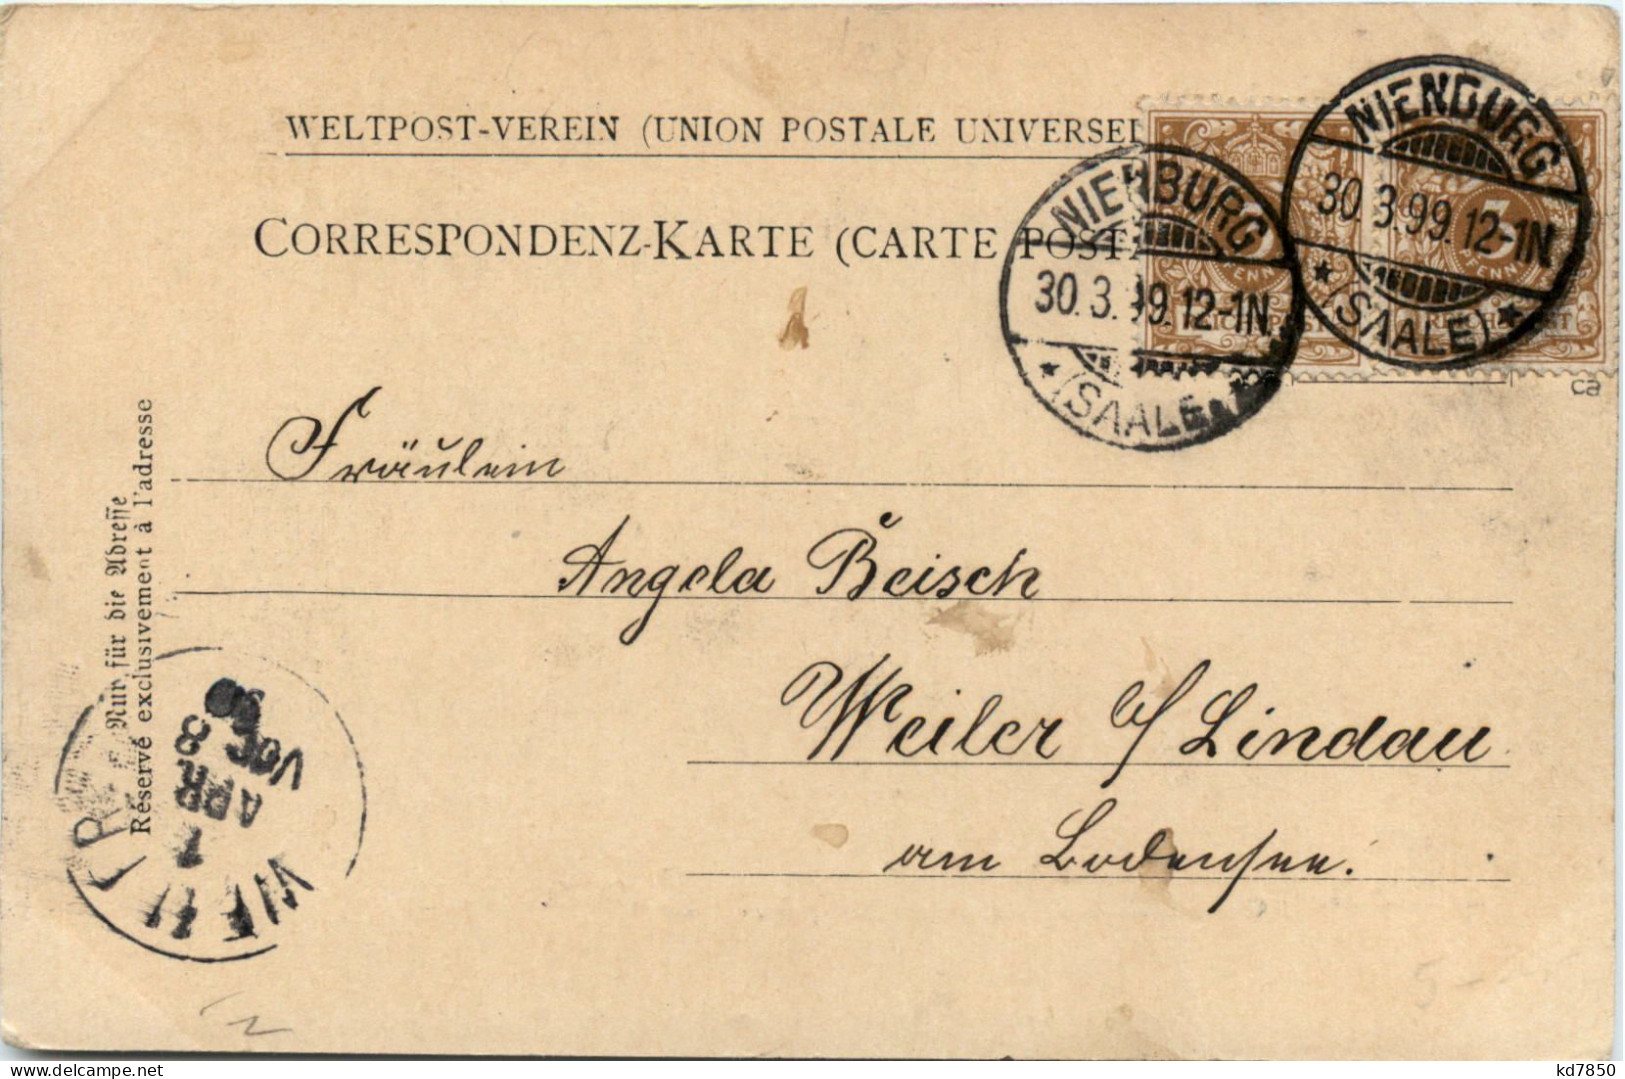 WELTPOST-VEREIN (UNION POSTALE UNIVERSEL
CORRESPONDENZ-KARTE (CARTE POSTA
NIENBURG
30.3.99.12-1N.
(SAALE)
NIENBURG
30.3.99.12-1N
(SAALE)
3
PFENNIG
REICHSPOST
ca
Fräulein
Angela Beisch
Weiler b/ Lindau
am Bodensee.
Nur für die Adresse
Réservé exclusivement à l'adresse
WEILER
1
APR
VOR. 8
99
5-
kd7850